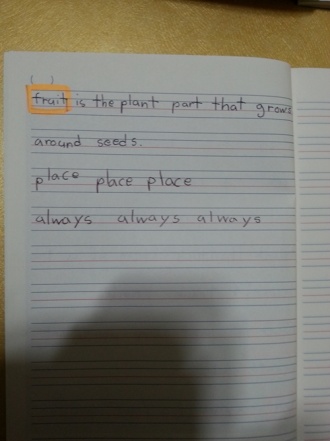 ( )
fruit is the plant part that grows
around seeds.
place place place
always always always